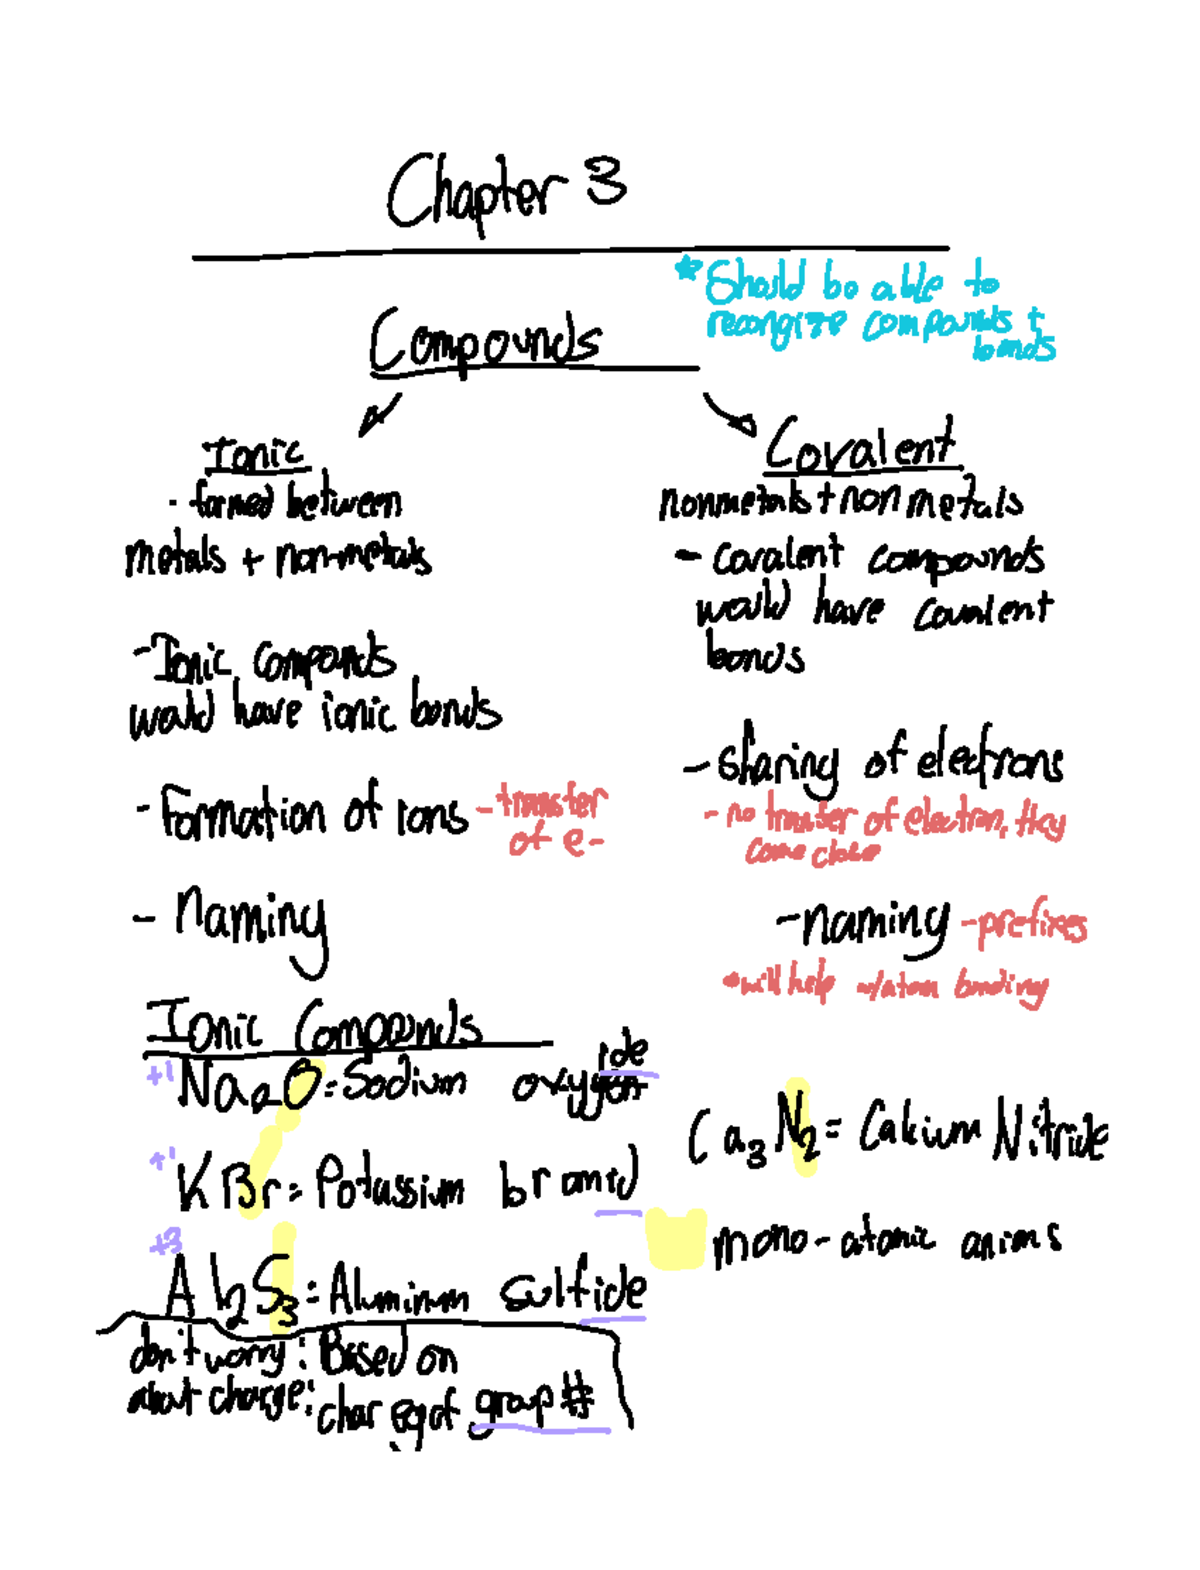 Chapter 3
* Should be able to
recongize compounds +
bonds
Compounds
Ionic
- formed between
metals + non-metals
- Ionic Compounds
would have ionic bonds
- Formation of ions - transfer
of e-
- Naming
Covalent
nonmetals + non metals
- covalent compounds
would have covalent
bonds
- sharing of electrons
- no transfer of electron, they
come close
- naming - prefixes
*will help w/atom bonding
Ionic Compounds
+1 Na2O = Sodium oxygen ide
+1 KBr = Potassium bromid
+3 Al2S3 = Aluminum sulfide
don't worry : Based on
about charge : charge of group #
Ca3N2 = Calcium Nitride
mono-atomic anions